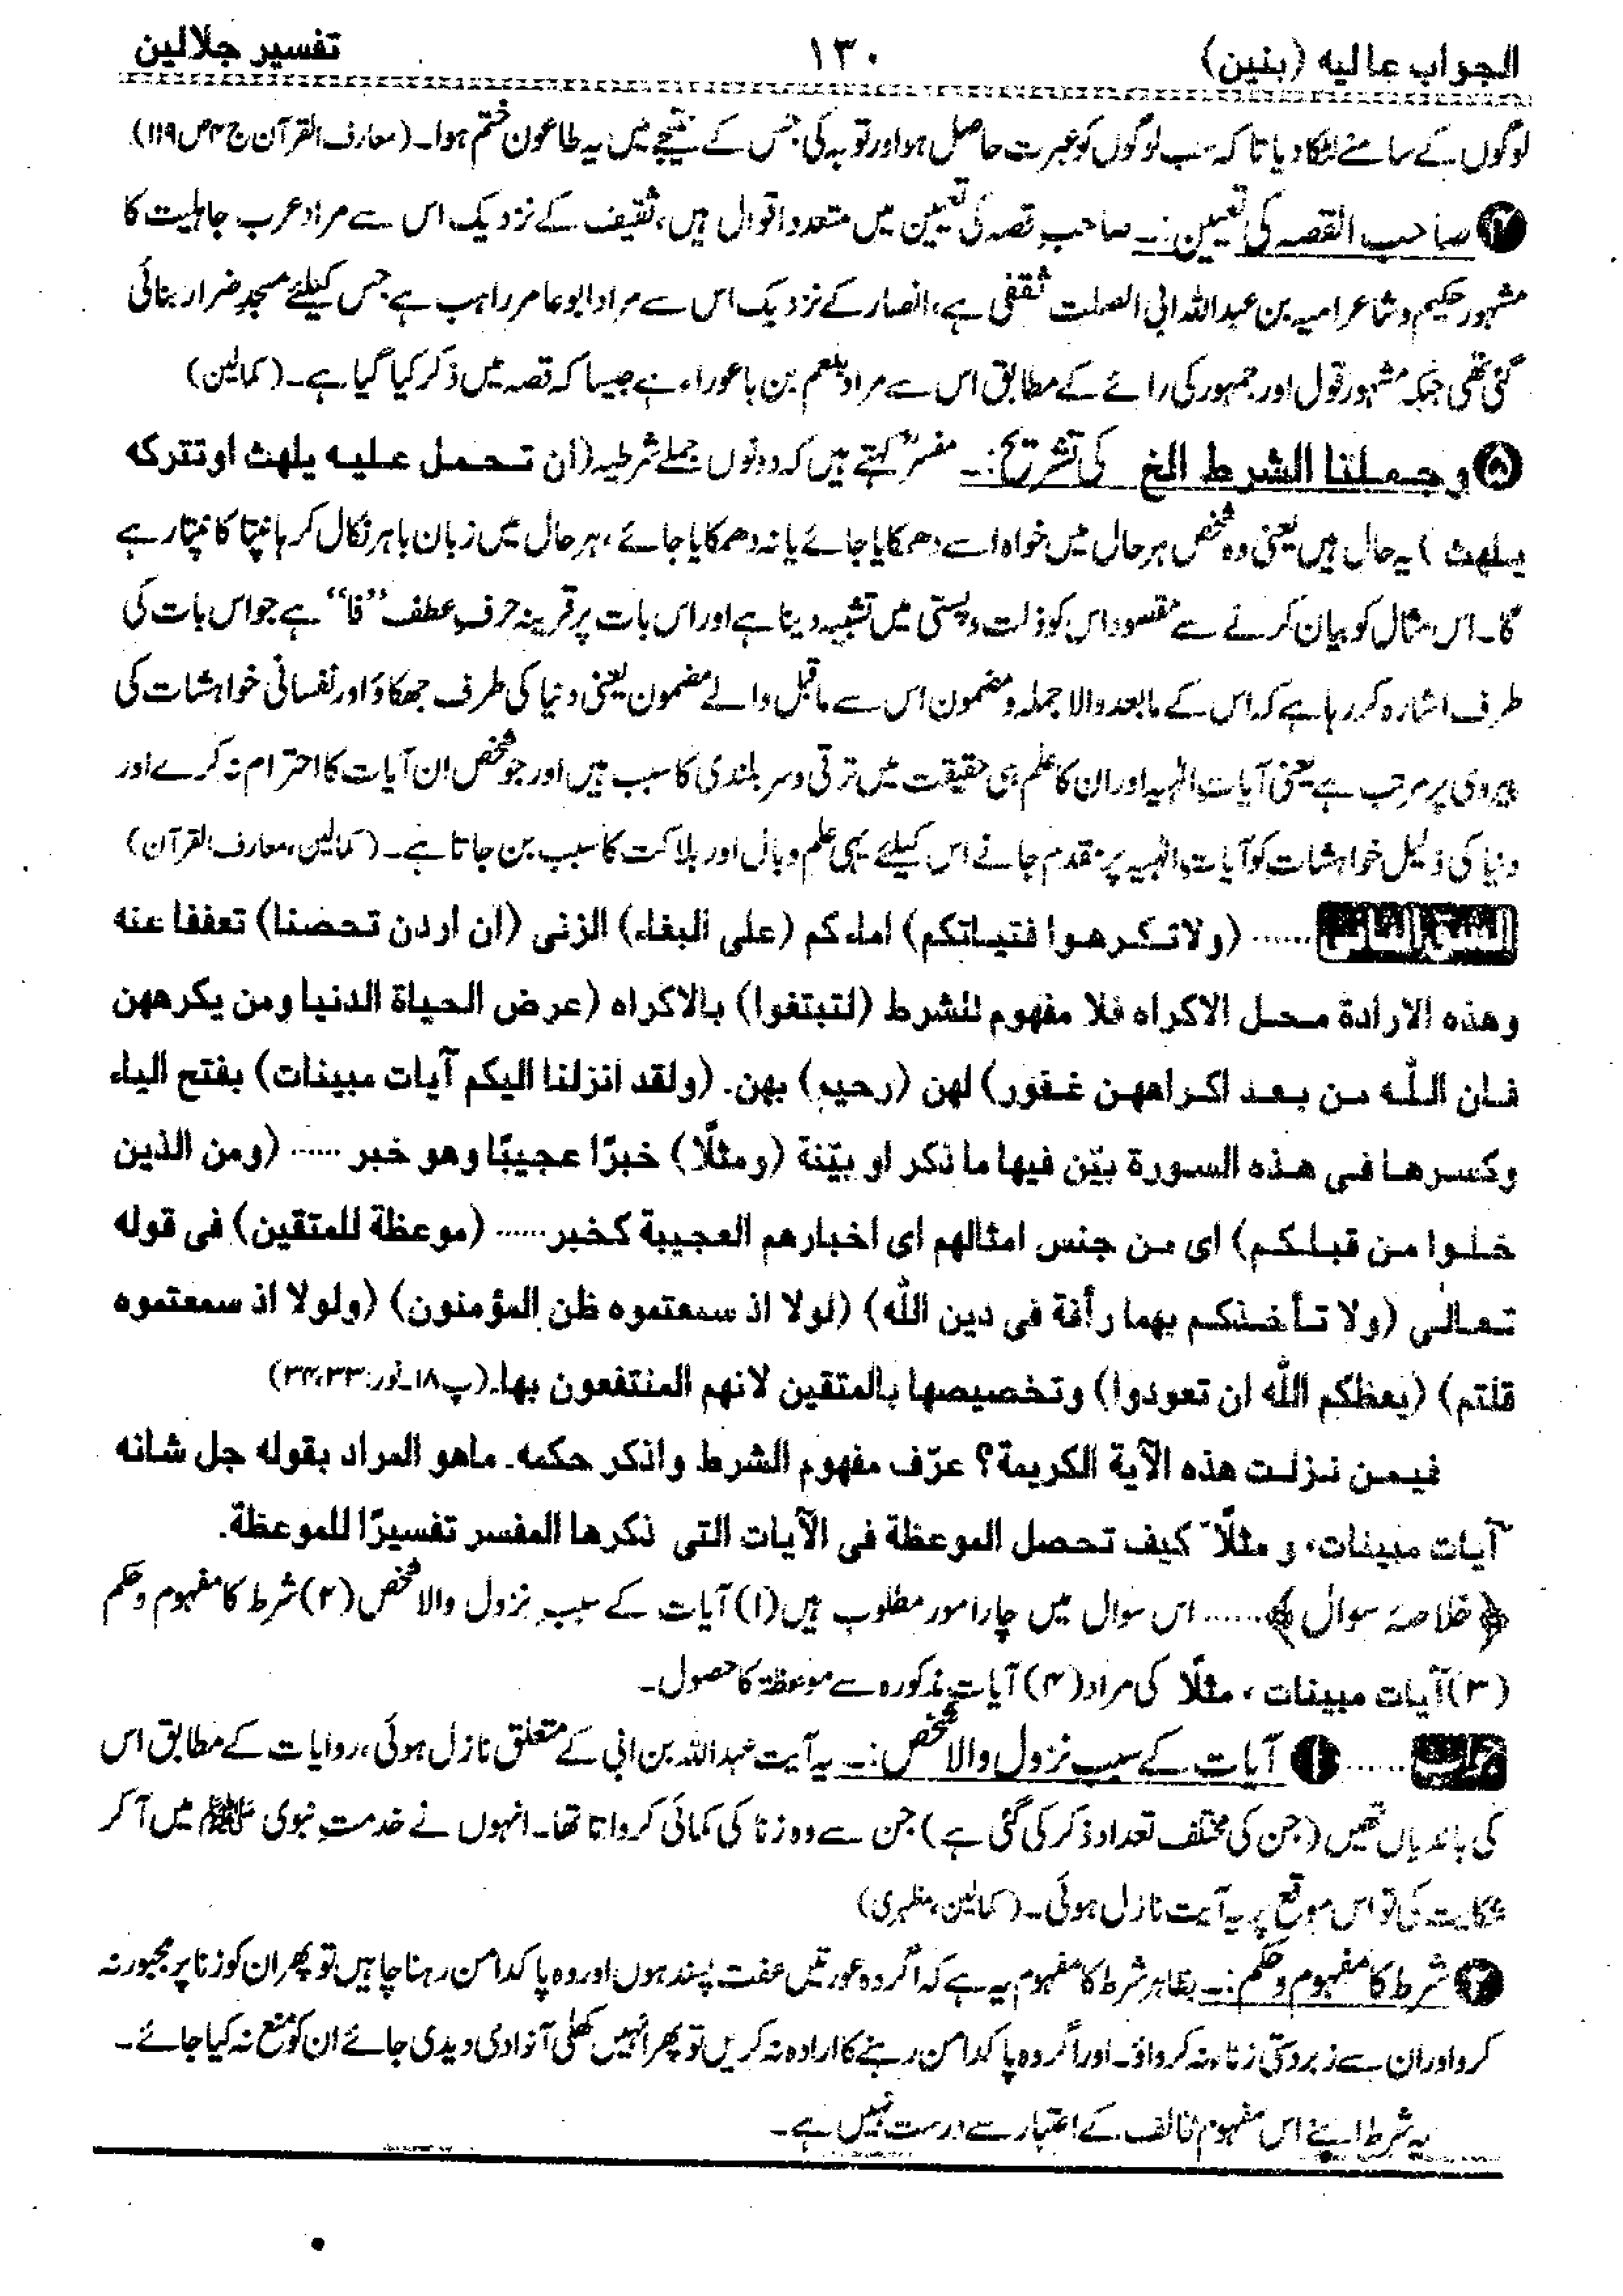 الجواب عالیه (بنین) ۱۳۰ تفسیر جلالین
لوگوں کے سامنے لٹکا دیا تا کہ سب لوگوں کو عبرت حاصل ہو اور توبہ کی جس کے نتیجے میں یہ طاعون ختم ہوا۔ (معارف القرآن ج۴ ص۱۱۹)
صاحب القصہ کی تعیین:۔ صاحبِ قصہ کی تعیین میں متعدد اقوال ہیں، ثقیف کے نزدیک اس سے مراد عرب جاہلیت کا
مشہور حکیم و شاعر امیہ بن عبد اللہ ابی الصلت ثقفی ہے، انصار کے نزدیک اس سے مراد ابو عامر راہب ہے جس کیلئے مسجدِ ضرار بنائی
گئی تھی جبکہ مشہور قول اور جمہور کی رائے کے مطابق اس سے مراد بلعم بن باعوراء ہے جیسا کہ قصہ میں ذکر کیا گیا ہے۔ (کمالین)
۵ وجملتا الشرط الخ کی تشریح:۔ مفسرؒ کہتے ہیں کہ دونوں جملے شرطیہ (ان تحمل علیه یلهث اوتترکه
یلهث) یہ حال ہیں یعنی وہ شخص ہر حال میں خواہ اسے دھمکایا جائے یا نہ دھمکایا جائے، ہر حال میں زبان باہر نکال کر ہانپتا کانپتا رہے
گا۔ اس مثال کو بیان کرنے سے مقصود اس کو ذلت و پستی میں تشبیہ دینا ہے اور اس بات پر قرینہ حرفِ عطف ”فا“ ہے جو اس بات کی
طرف اشارہ کر رہا ہے کہ اس کے مابعد والا جملہ و مضمون اس سے ماقبل والے مضمون یعنی دنیا کی طرف جھکاؤ اور نفسانی خواہشات کی
پیروی پر مرتب ہے یعنی آیاتِ الٰہیہ اور ان کا علم ہی حقیقت میں ترقی و سر بلندی کا سبب ہیں اور جو شخص ان آیات کا احترام نہ کرے اور
دنیا کی ذلیل خواہشات کو آیاتِ الٰہیہ پر مقدم جانے اس کیلئے یہی علم وبال اور ہلاکت کا سبب بن جاتا ہے۔ (کمالین، معارف القرآن)
...... (ولاتکرهوا فتیاتکم) اماءکم (علی البغاء) الزنی (ان اردن تحصنا) تعففا عنه
وهذه الارادة محل الاکراه فلا مفهوم للشرط (لتبتغوا) بالاکراه (عرض الحیاة الدنیا ومن یکرههن
فان الله من بعد اکراههن غفور) لهن (رحیم) بهن. (ولقد انزلنا الیکم آیات مبینات) بفتح الیاء
وکسرها فی هذه السورة بیّن فیها ما ذکر او بیّنة (ومثلًا) خبرًا عجیبًا وهو خبر ...... (ومن الذین
خلوا من قبلکم) ای من جنس امثالهم ای اخبارهم العجیبة کخبر...... (موعظة للمتقین) فی قوله
تعالٰی (ولا تأخذکم بهما رأفة فی دین الله) (لولا اذ سمعتموه ظن المؤمنون) (ولولا اذ سمعتموه
قلتم) (یعظکم الله ان تعودوا) وتخصیصها بالمتقین لانهم المنتفعون بها. (پ۱۸۔نور:۳۳،۳۴)
فیمن نزلت هذه الآیة الکریمة؟ عرّف مفهوم الشرط واذکر حکمه۔ ماهو المراد بقوله جل شانه
"آیات مبینات، و مثلًا" کیف تحصل الموعظة فی الآیات التی ذکرها المفسر تفسیرًا للموعظة.
﴿خلاصۂ سوال﴾...... اس سوال میں چار امور مطلوب ہیں (۱) آیات کے سببِ نزول والا شخص (۲) شرط کا مفہوم و حکم
(۳) آیات مبینات، مثلًا کی مراد (۴) آیاتِ مذکورہ سے موعظۃ کا حصول۔
...... ۱ آیات کے سببِ نزول والا شخص:۔ یہ آیت عبد اللہ بن ابی کے متعلق نازل ہوئی، روایات کے مطابق اس
کی باندیاں تھیں (جن کی مختلف تعداد ذکر کی گئی ہے) جن سے وہ زنا کی کمائی کرواتا تھا۔ انہوں نے خدمتِ نبوی ﷺ میں آ کر
شکایت کی تو اس موقع پر یہ آیت نازل ہوئی۔ (کمالین، مظہری)
۲ شرط کا مفہوم و حکم:۔ بظاہر شرط کا مفہوم یہ ہے کہ اگر وہ عورتیں عفت پسند ہوں اور وہ پاکدامن رہنا چاہیں تو پھر ان کو زنا پر مجبور نہ
کرو اور ان سے زبردستی زناء نہ کرواؤ۔ اور اگر وہ پاکدامن رہنے کا ارادہ نہ کریں تو پھر انہیں کھلی آزادی دیدی جائے ان کو منع نہ کیا جائے۔
یہ شرط اپنے اس مفہوم مخالف کے اعتبار سے درست نہیں ہے۔